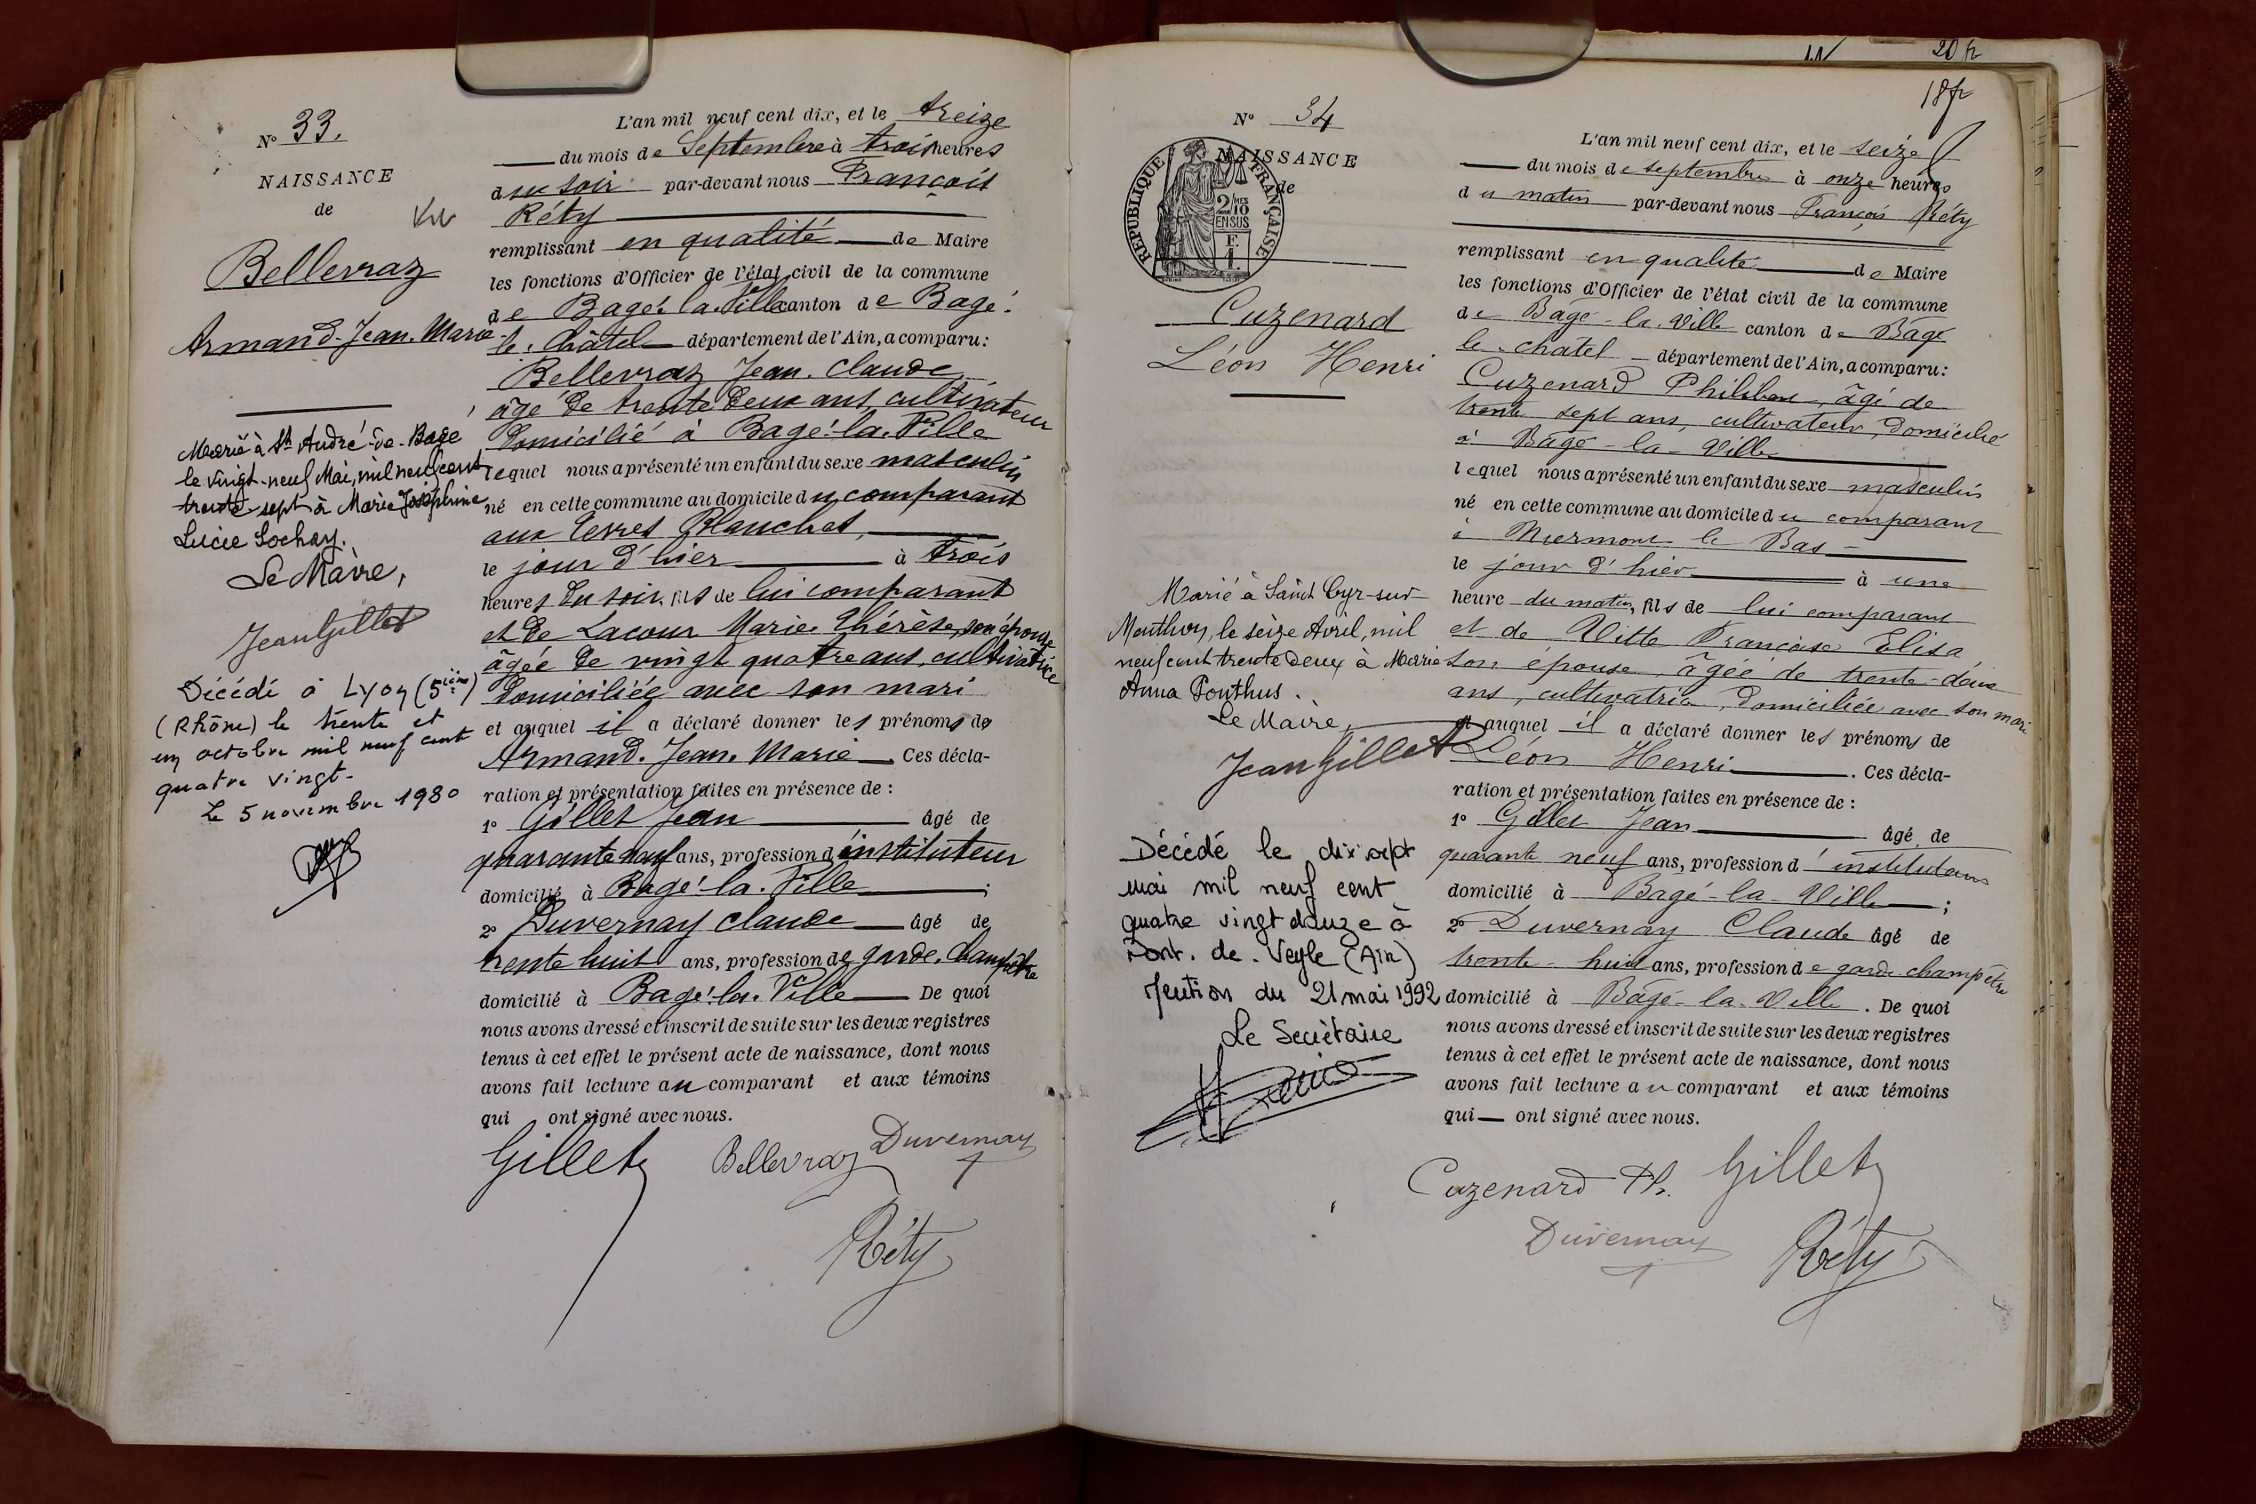 N° 33.
NAISSANCE
de
Bellevraz
Armand. Jean. Marie
Marié à St André-de-Bagé
le vingt-neuf Mai, mil neuf cent
trente-sept à Marie Joséphine
Lucie Lochay.
Le Maire,
Jean Gillet
Décédé à Lyon (5ième)
(Rhône) le trente et
un octobre mil neuf cent
quatre vingt-
Le 5 novembre 1980
L'an mil neuf cent dix, et le treize
du mois de Septembre à trois heures
du soir par-devant nous François
Réty
remplissant en qualité de Maire
les fonctions d'Officier de l'état civil de la commune
de Bagé-la-Ville canton de Bagé-
le-Châtel département de l'Ain, a comparu:
Bellevraz Jean-Claude,
âgé de trente deux ans, cultivateur
domicilié à Bagé-la-Ville
lequel nous a présenté un enfant du sexe masculin
né en cette commune au domicile du comparant
aux Terres Blanches,
le jour d'hier à trois
heures du soir, fils de lui comparant
et de Lacour Marie Thérèse, son épouse
âgée de vingt quatre ans, cultivatrice
domiciliée avec son mari
et auquel il a déclaré donner les prénoms de
Armand. Jean. Marie. Ces décla-
ration et présentation faites en présence de :
1° Gillet Jean âgé de
quarante neuf ans, profession d'instituteur
domicilié à Bagé-la-Ville ;
2° Duvernay Claude âgé de
trente huit ans, profession de garde-champêtre
domicilié à Bagé-la-Ville De quoi
nous avons dressé et inscrit de suite sur les deux registres
tenus à cet effet le présent acte de naissance, dont nous
avons fait lecture au comparant et aux témoins
qui ont signé avec nous.
Gillet Bellevraz Duvernay
Réty
20 fr
18 fr
N° 34
NAISSANCE
de
REPUBLIQUE FRANÇAISE
2/10 MES
EN SUS
F.
1.
Cuzenard
Léon Henri
Marié à Saint Cyr-sur
Menthon, le seize Avril, mil
neuf cent trente deux à Marie
Anna Ponthus.
Le Maire,
Jean Gillet
Décédé le dix sept
mai mil neuf cent
quatre vingt douze à
Pont. de. Veyle (Ain)
Mention du 21 mai 1992
Le Secrétaire
L'an mil neuf cent dix, et le seize
du mois de septembre à onze heures
du matin par-devant nous François Réty
remplissant en qualité de Maire
les fonctions d'Officier de l'état civil de la commune
de Bagé-la-Ville canton de Bagé
le-chatel département de l'Ain, a comparu:
Cuzenard Philibert, âgé de
trente sept ans, cultivateur, domicilié
à Bagé-la-Ville
lequel nous a présenté un enfant du sexe masculin
né en cette commune au domicile du comparant
à Murmont le Bas
le jour d'hier à une
heure du matin, fils de lui comparant
et de Vitte Françoise Elisa
son épouse, âgée de trente-deux
ans, cultivatrice, domiciliée avec son mari
et auquel il a déclaré donner les prénoms de
Léon Henri. Ces décla-
ration et présentation faites en présence de :
1° Gillet Jean âgé de
quarante neuf ans, profession d'instituteur
domicilié à Bagé-la-Ville ;
2° Duvernay Claude âgé de
trente-huit ans, profession de garde champêtre
domicilié à Bagé-la-Ville. De quoi
nous avons dressé et inscrit de suite sur les deux registres
tenus à cet effet le présent acte de naissance, dont nous
avons fait lecture au comparant et aux témoins
qui ont signé avec nous.
Cuzenard Ph. Gillet
Duvernay Réty